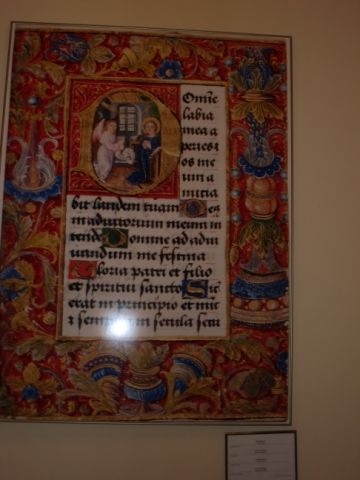 Omīe
labia
mea a
peries z
os me
um a
nūtia
bit laudem tuam De
in adiutorium meum in
tende Domine ad adiu
uandum me festina
Gloria patri et filio
et spiritui sancto Sic
erat in principio et nūc
z semper in secula secu